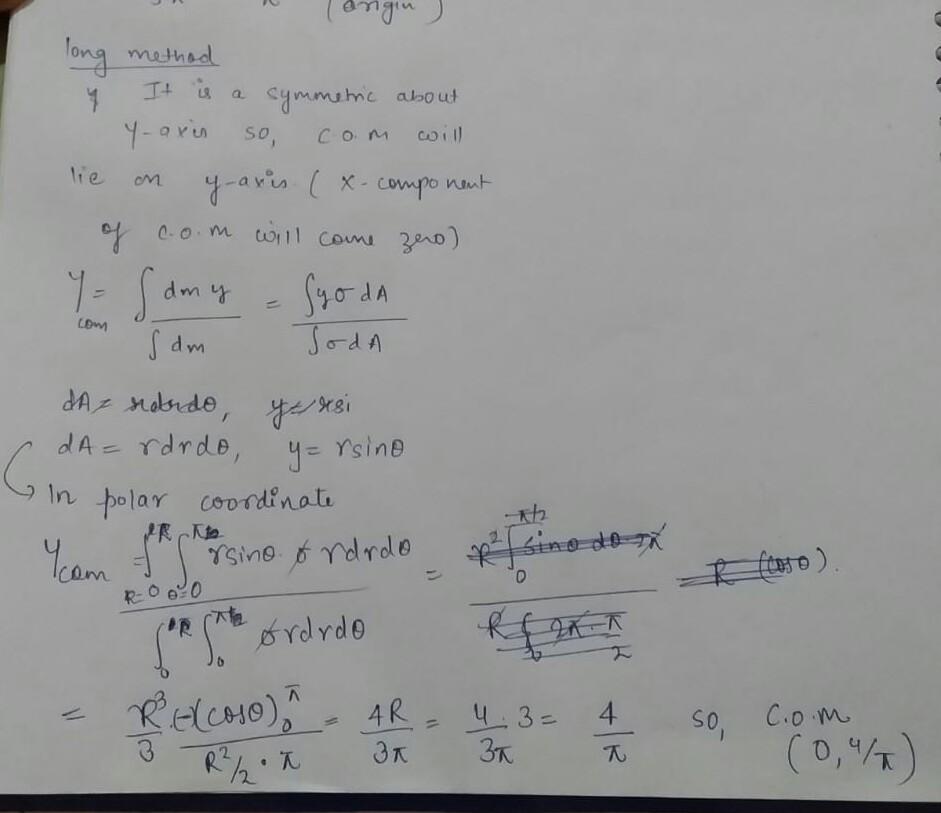 (origin)
long method
It is a symmetric about
y-axis so, C.O.M will
lie on y-axis (x-component
of C.O.M will come zero)
Y com = ∫ dm y / ∫ dm = ∫ y σ dA / ∫ σ dA
dA = rdrdθ, y = rsi
dA = rdrdθ, y = rsinθ
In polar coordinate
Ycom = ∫ R=0 R ∫ θ=0 π rsinθ σ rdrdθ / ∫ 0 R ∫ 0 π σ rdrdθ =
= R³/3 (-(cosθ) 0 π / R²/2 · π = 4R/3π = 4·3/3π = 4/π so, C.O.M
(0, 4/π)